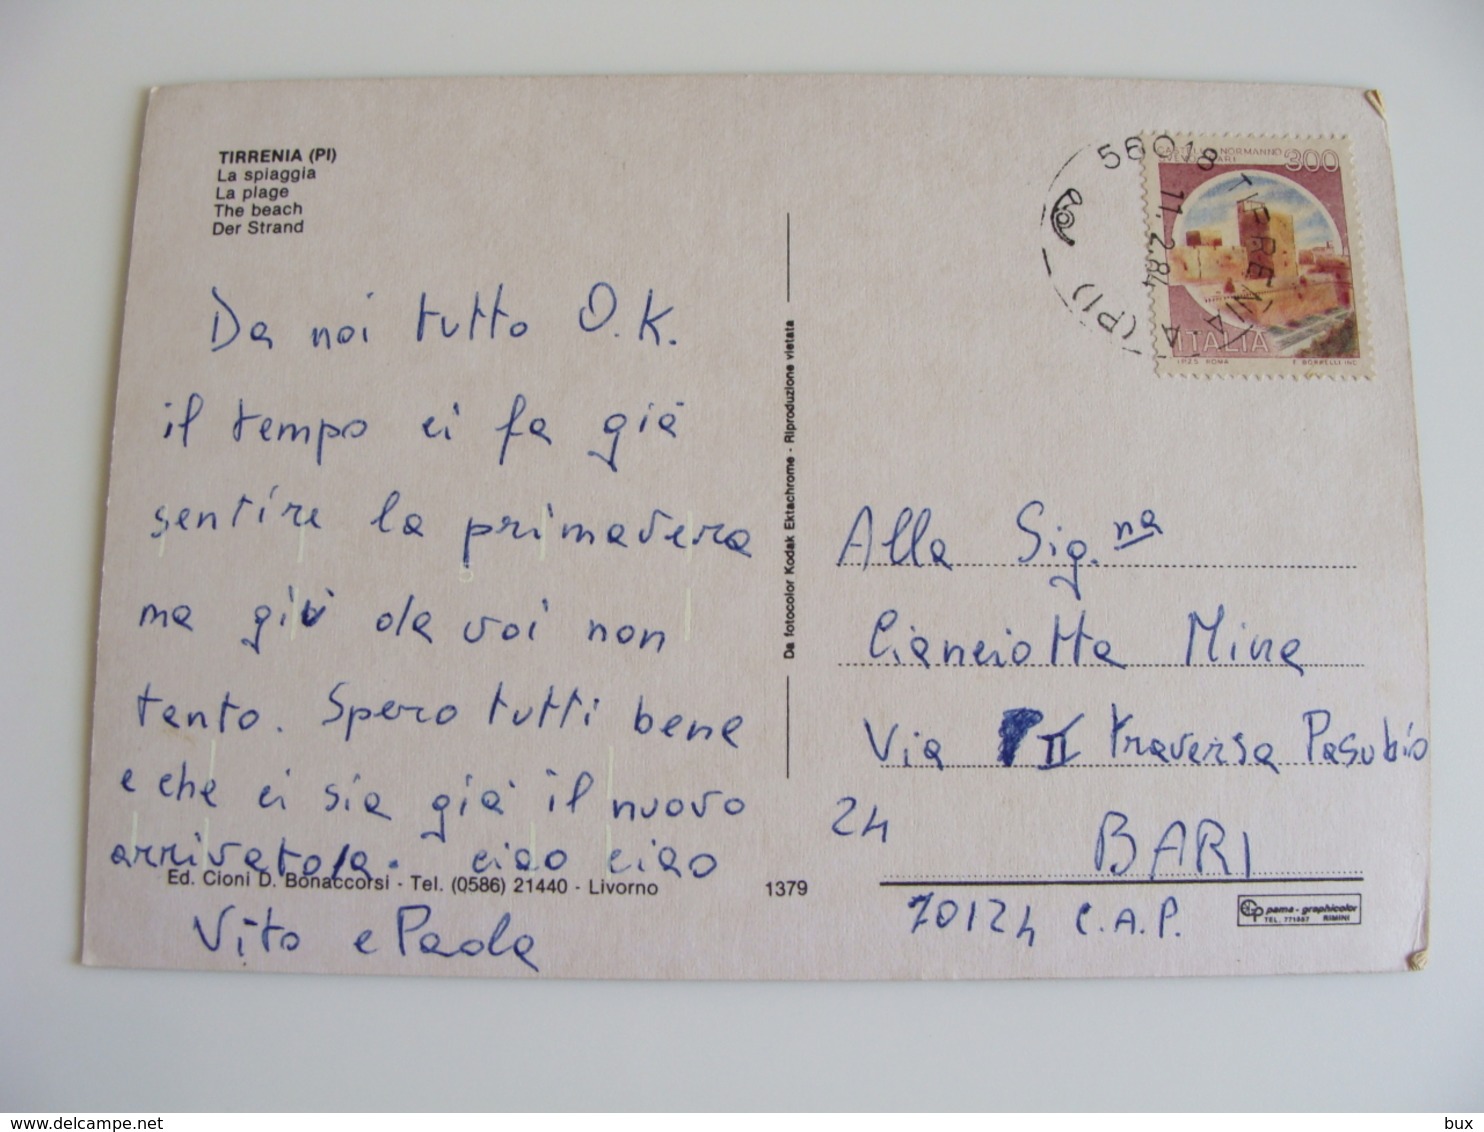 TIRRENIA (PI)
La spiaggia
La plage
The beach
Der Strand
Da noi tutto O.K.
il tempo ci fa già
sentire la primavera
ma giù da voi non
tanto. Spero tutti bene
e che ci sia già il nuovo
arrivato/a. ciao ciao
Vito e Paola
Ed. Cioni D. Bonaccorsi - Tel. (0586) 21440 - Livorno
1379
Da fotocolor Kodak Ektachrome - Riproduzione vietata
56018 TIRRENIA (PI)
11.2.84
CASTELLO NORMANNO
BARI
300
ITALIA
I.P.Z.S. ROMA
F. BORRELLI INC.
Alla Sig.na
Cianciotta Mina
Via II traversa Pasubio
24
BARI
70124 C.A.P.
pama - graphicolor
TEL. 771557 RIMINI
delcampe.net
bux